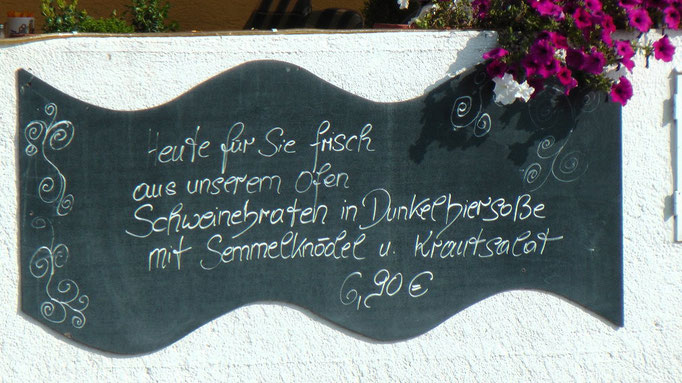 Heute für Sie frisch
aus unserem Ofen
Schweinebraten in Dunkelbiersoße
mit Semmelknödel u. Krautsalat
6,90 €